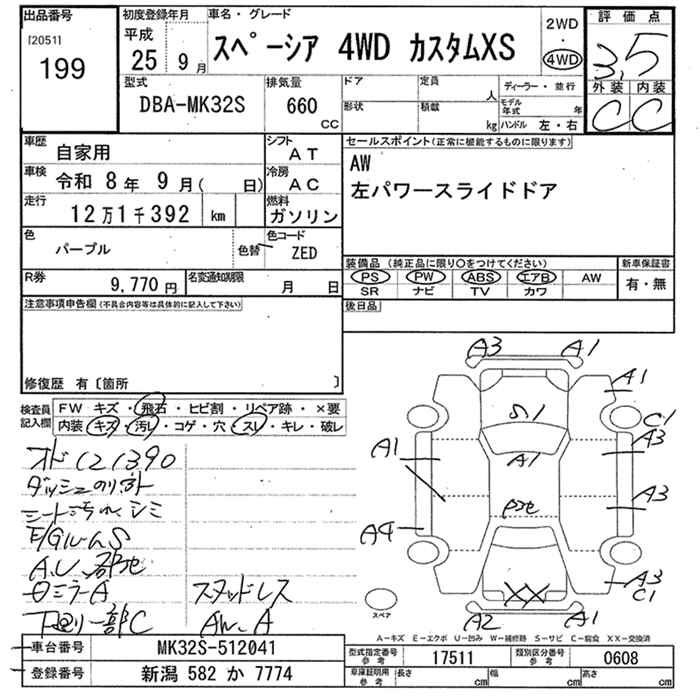 出品番号 初度登録年月 車名・グレード 2WD 評価点
[2051] 平成 スペーシア 4WD カスタムXS ・ 3.5
199 25年 9月 4WD 外装 内装
型式 排気量 ドア 定員 人 ディーラー・並行 C C
DBA-MK32S 660 CC 形状 積載 kg モデル年式 年 ハンドル 左・右
車歴 自家用 シフト AT セールスポイント(正常に機能するものに限ります)
車検 令和 8年 9月( 日) 冷房 AC AW
走行 12万1千392 km 燃料 ガソリン 左パワースライドドア
色 パープル 色替 色コード ZED
装備品(純正品に限り○をつけてください) 新車保証書
R券 9,770円 名変通知期限 月 日 PS PW ABS エアB AW 有・無
SR ナビ TV カワ
注意事項申告欄(不具合内容等は具体的に記入して下さい) 後日品
修復歴 有〔箇所 〕
検査員記入欄 FW キズ・飛石・ヒビ割・リペア跡・×要
内装・キズ・汚レ・コゲ・穴・スレ・キレ・破レ
A3 A1
A1
S1 C1
A1 A1 A3
A3
A4
A3
C1
XX
A2 A1
オド121390
シート汚れ シミ
スタッドレス
AW A
スペア
A―キズ E―エクボ U―凹み W―補修跡 S―サビ C―腐食 XX―交換済
車台番号 MK32S-512041 型式指定番号 参考 17511 類別区分番号 参考 0608
登録番号 新潟 582 か 7774 車庫証明用 参考 長さ cm 幅 cm 高さ cm